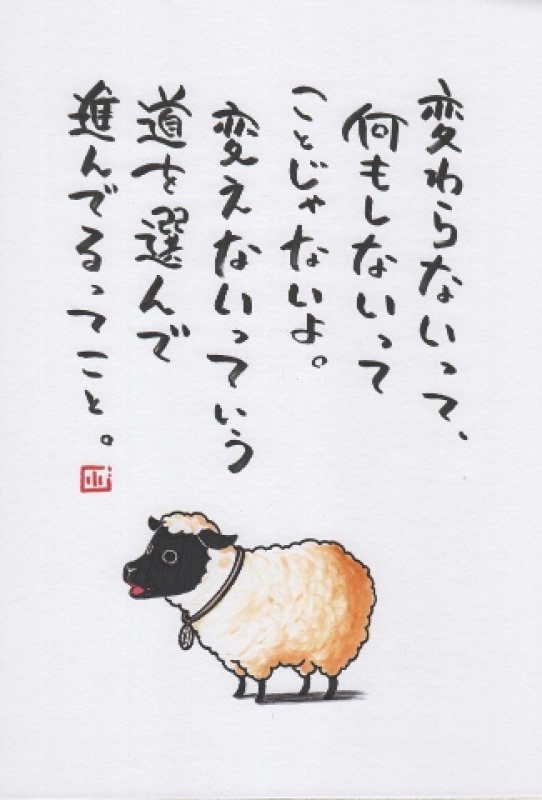 変わらないって、
何もしないって
ことじゃないよ。
変えないっていう
道を選んで
進んでるってこと。